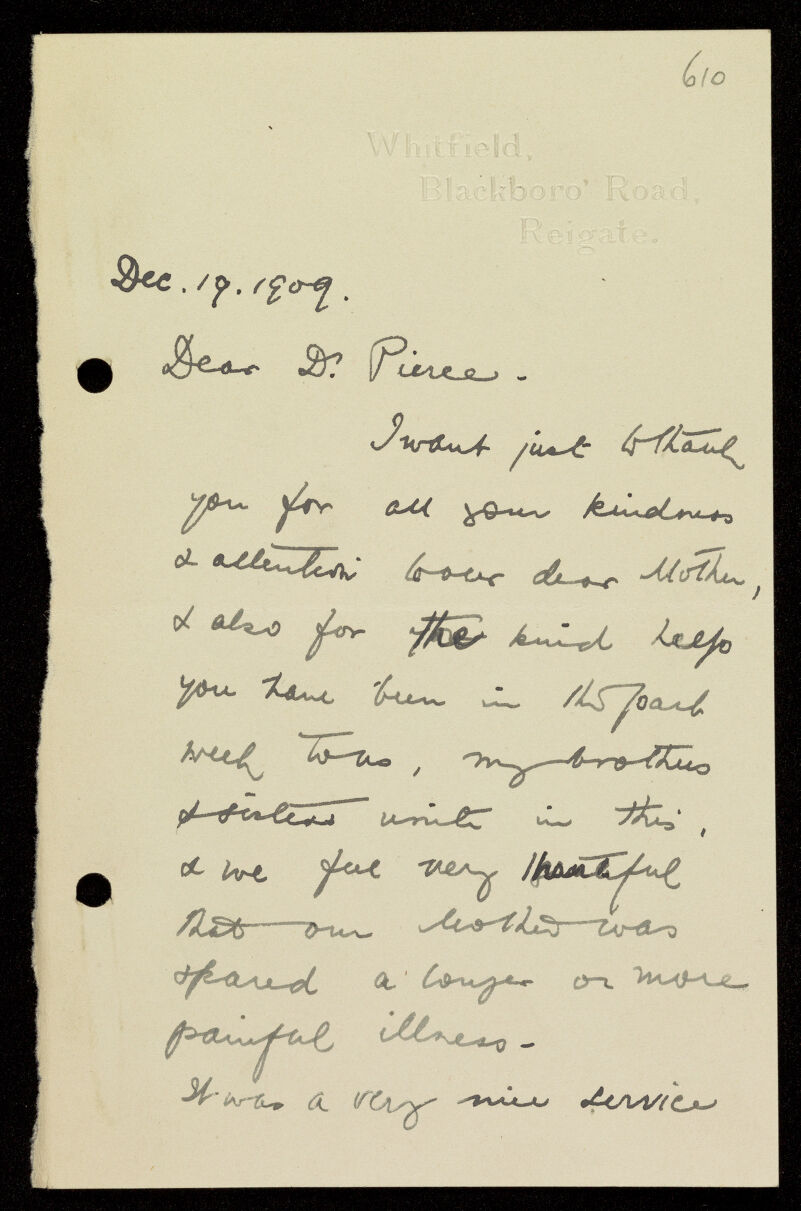 610
Whitfield,
Blackboro' Road,
Reigate.
Dec. 19. 1909.
Dear Dr. Pierce -
I want just to thank
you for all your kindness
& attention to our dear Mother,
& also for the kind help
you have been in the past
week to us, my brothers
& sisters unite in this,
& we feel very thankful
that our Mother was
spared a longer or more
painful illness -
It was a very nice service